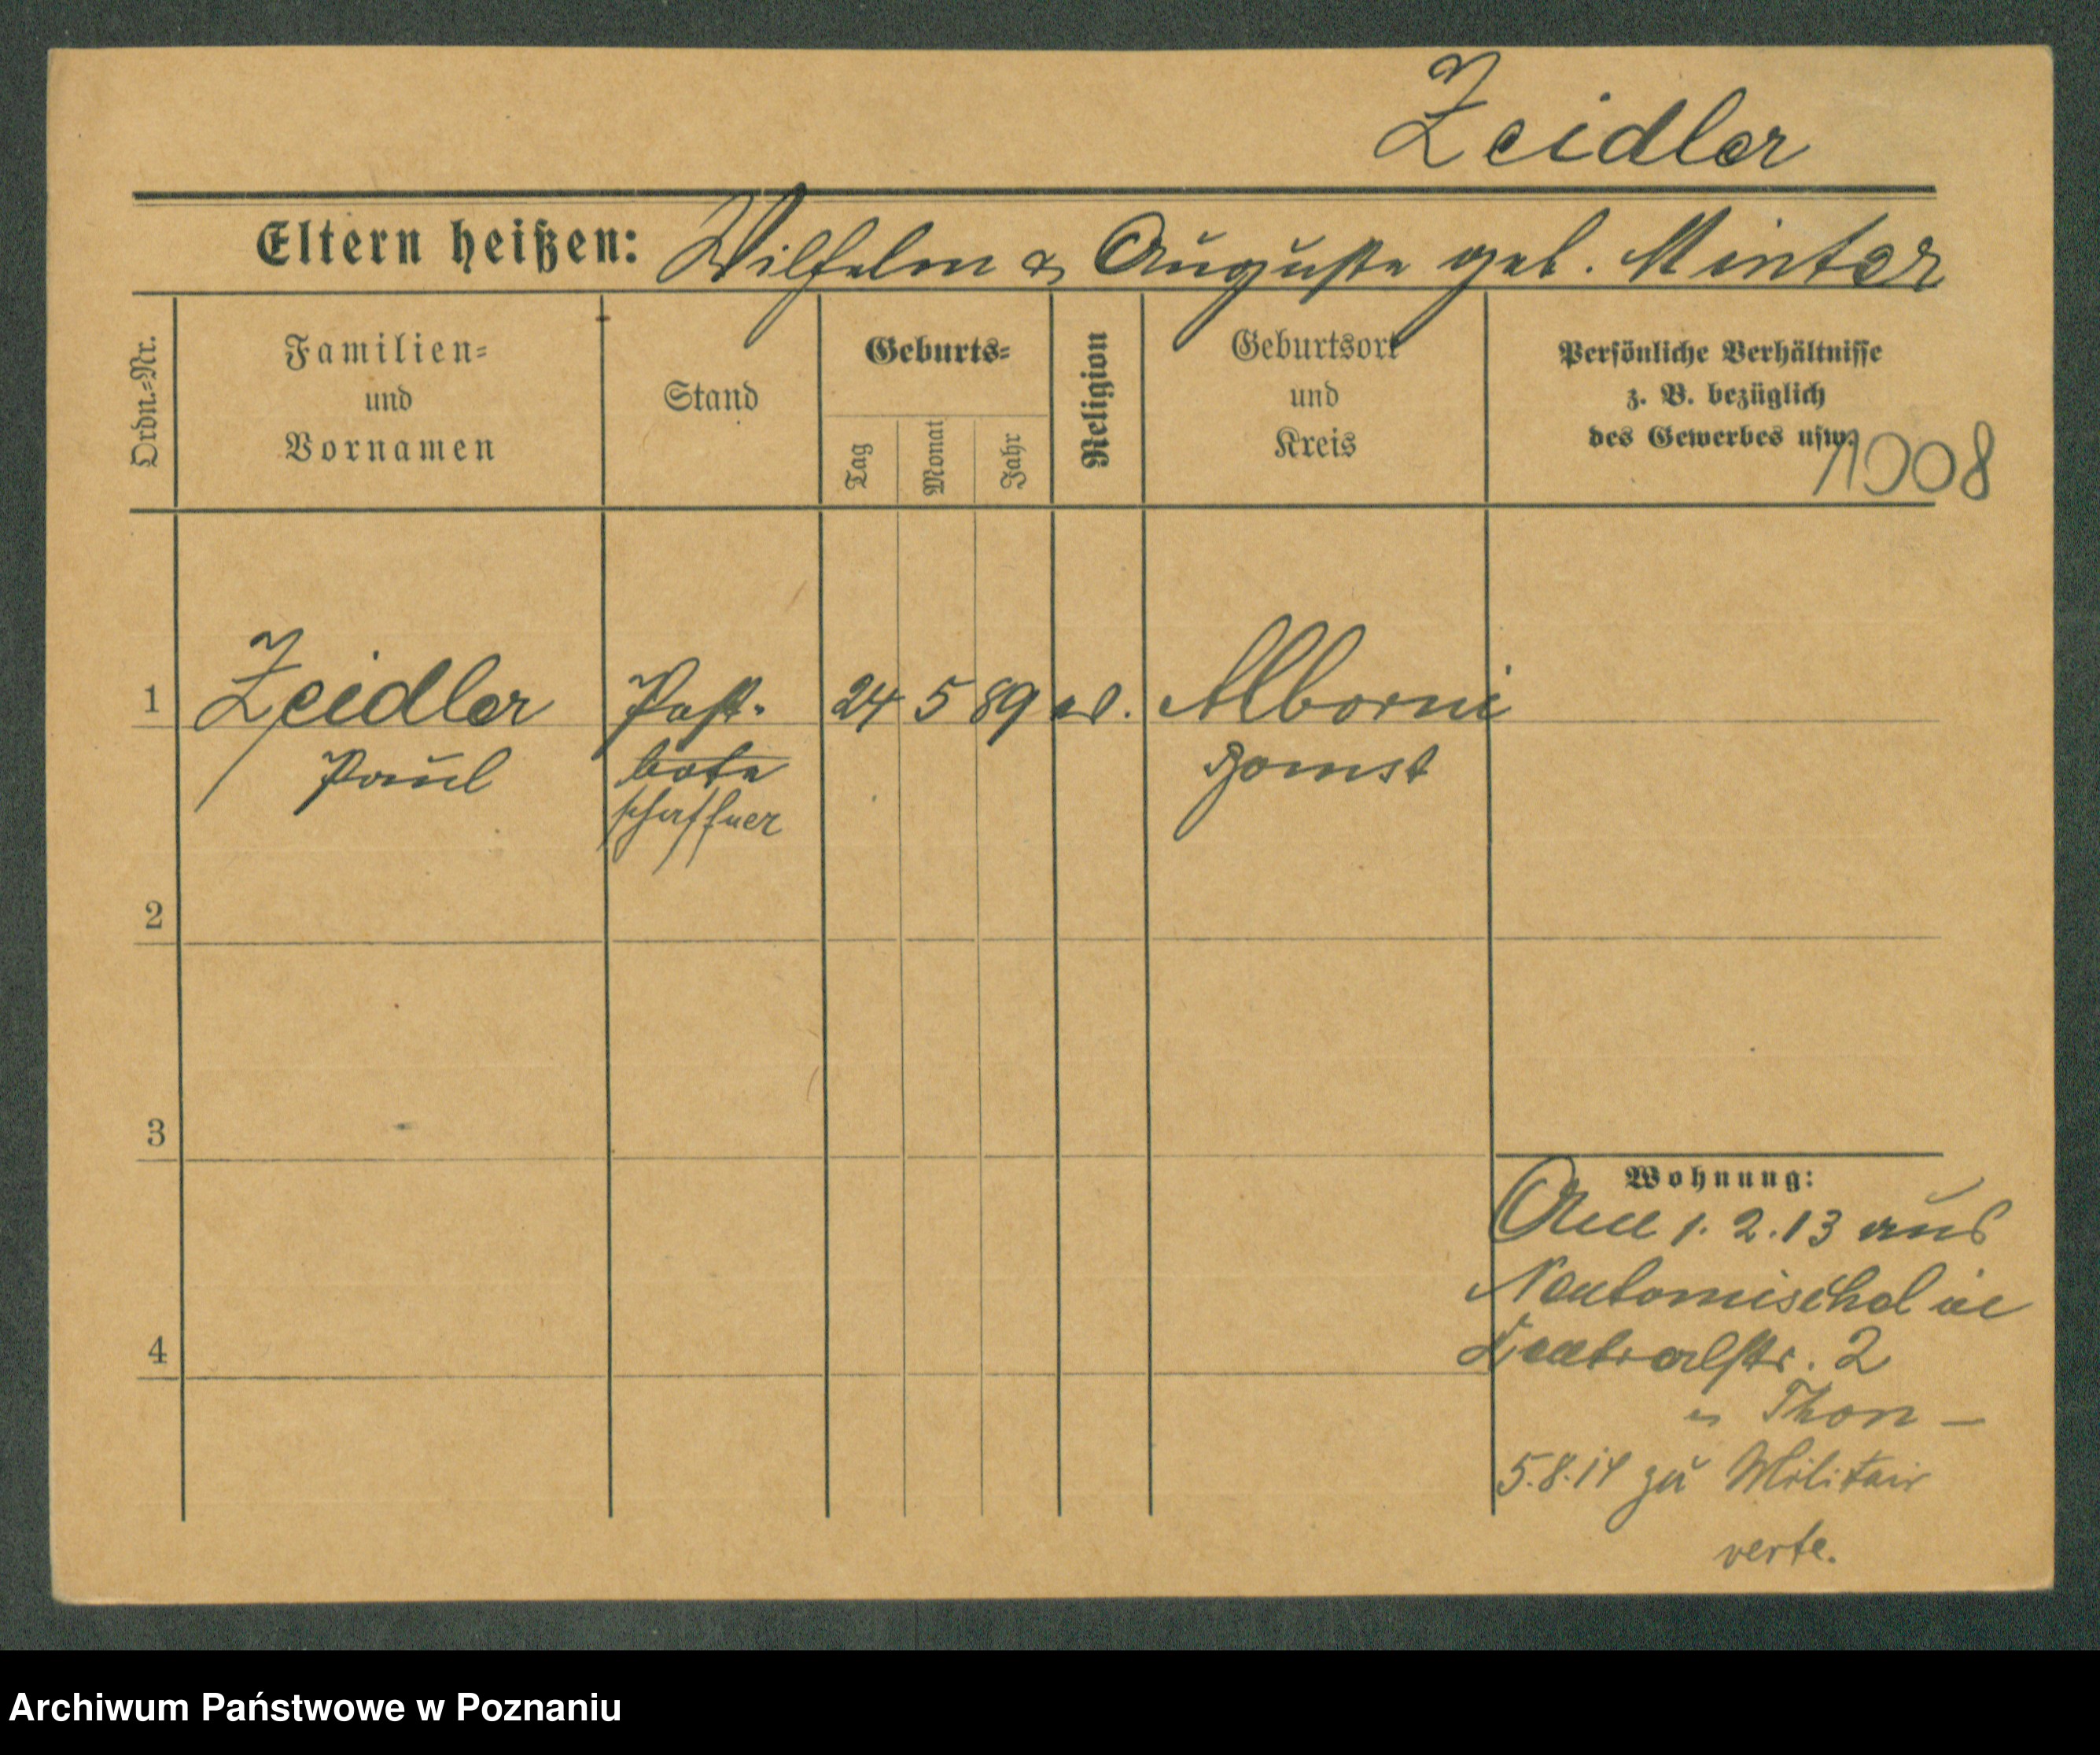 Zeidler
Eltern heißen: Wilhelm & Auguste geb. Minter
Ordn.=Nr.
Familien=
und
Vornamen
Stand
Geburts=
Tag
Monat
Jahr
Religion
Geburtsort
und
Kreis
Persönliche Verhältnisse
z. B. bezüglich
des Gewerbes usw.
1908
1 Zeidler Post- 24 5 89 ev. Alborni
Paul bote Bomst
schaffner
2
3
4
Wohnung:
1.2.13 aus
Neutomischel in
Zentralstr. 2
Thon –
5.8.14 zu Militair
verte.
Archiwum Państwowe w Poznaniu